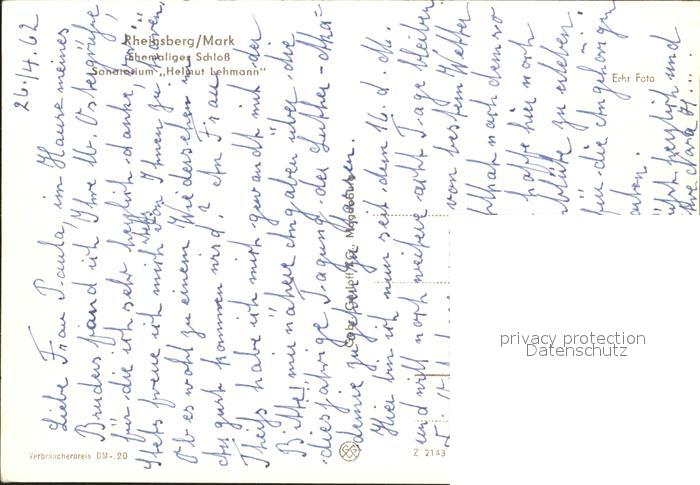 Rheinsberg/Mark
Ehemaliges Schloß
Sanatorium „Helmut Lehmann"
Echt Foto
26./4. 62
Liebe Frau Paula, im Hause meines
Bruders fand ich Ihre lb. Ostergrüße,
für die ich sehr herzlich danke,
Stets freue ich mich von Ihnen zu hören.
Ob es wohl zu einem Wiedersehen im
August kommen wird? An Frau
Theiß habe ich mich gewandt mit der
Bitte, mir nähere Angaben über die
diesjährige Tagung der Luther-Aka=
demie zugehen zu lassen.
Hier bin ich nun seit dem 16. d. M.
und will noch weitere acht Tage bleiben
von bestem Wetter
nach dem so
hoffe hier noch
blüte zu erleben.
für die Angehörigen
herzlich und
Magdeburg
Verbraucherpreis DM -.20
Z 2143
privacy protection
Datenschutz